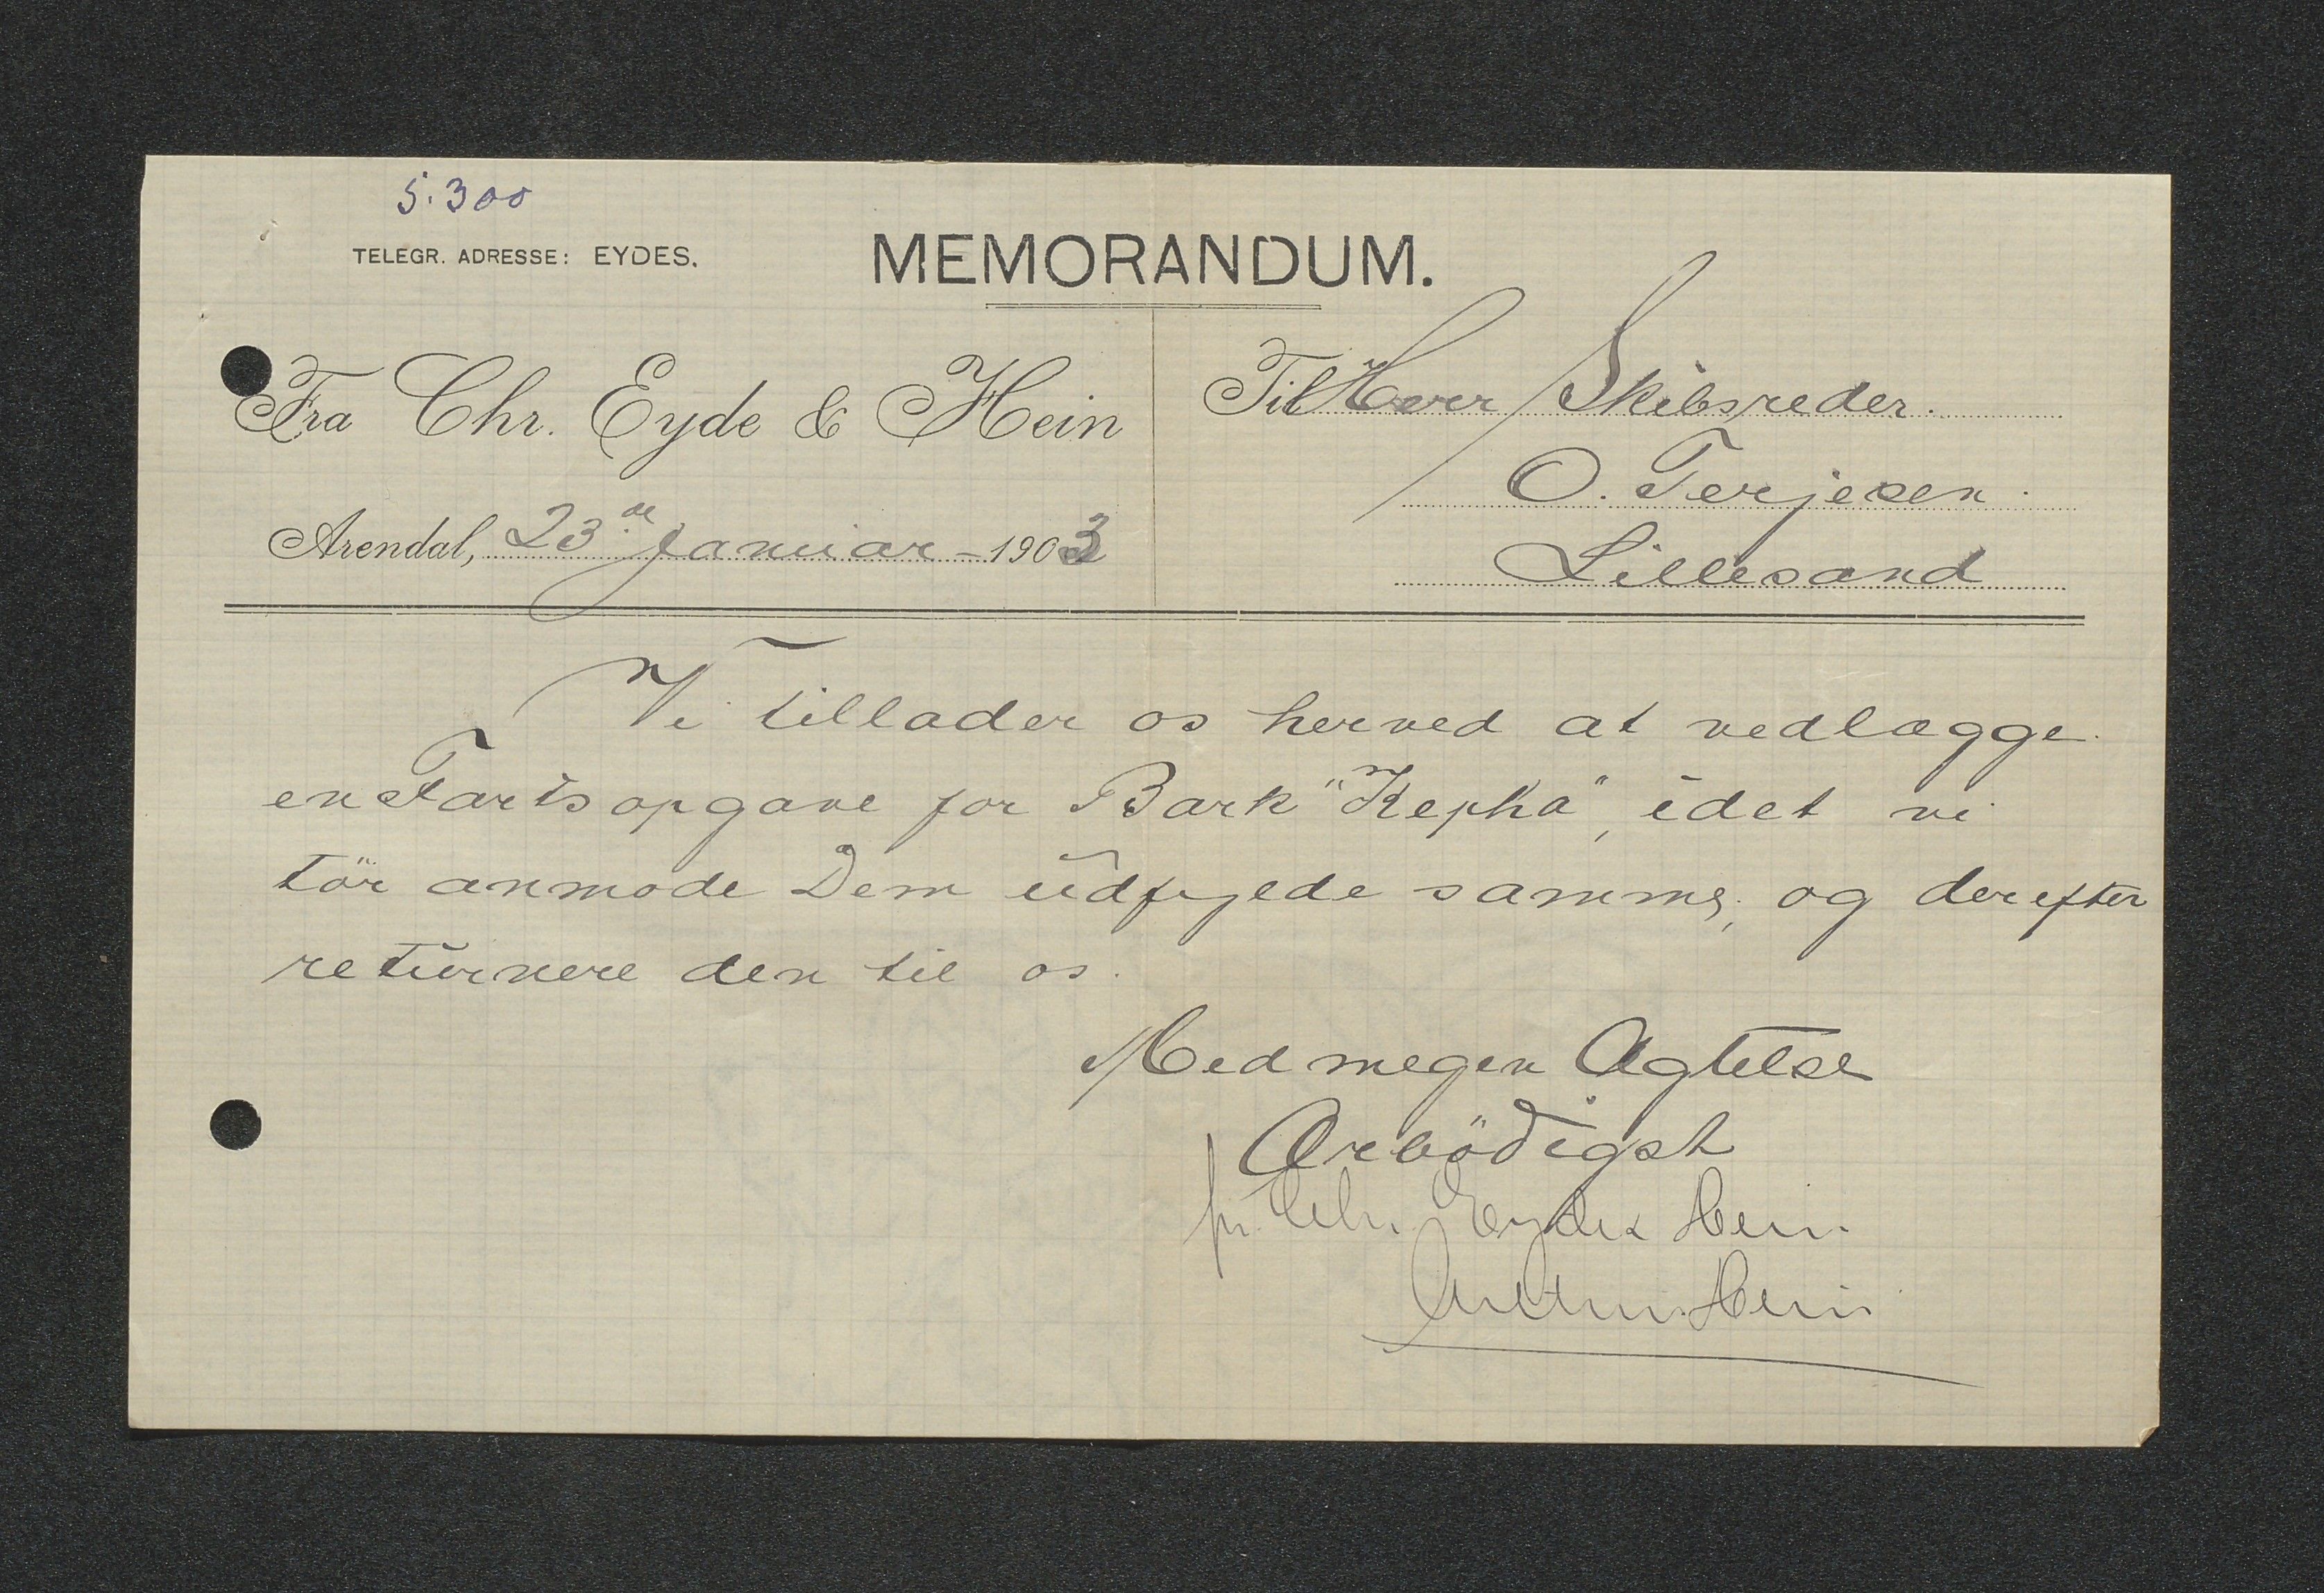 5.300
TELEGR. ADRESSE: EYDES.
MEMORANDUM.
Fra Chr. Eyde & Hein
Til Herr Skibsreder.
O. Terjesen.
Arendal, 23de Januar - 1903
Lillesand
Vi tillader os herved at vedlægge
en Fartsopgave for Bark "Kepha", idet vi
tör anmode Dem udfylde samme, og derefter
returnere den til os.
Med megen Agtelse
Ærbödigst
pr. Chr. Eyde & Hein.
Hein